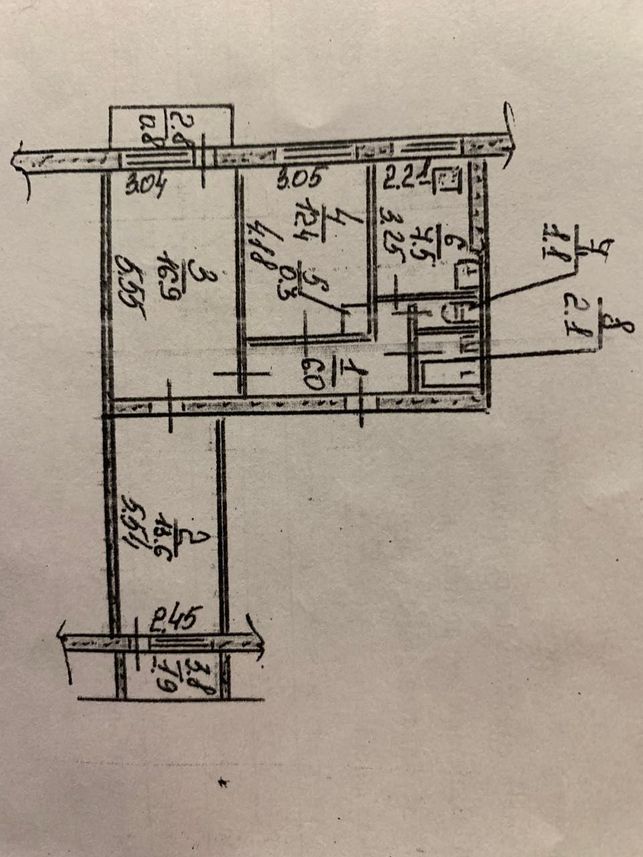 2.8
0.8
3.04
3.05
2.21
3
16.9
5.55
4
12.4
4.18
5
0.3
6
7.5
3.25
7
1.1
8
2.1
1
6.0
2
13.6
5.54
2.45
3.8
1.9